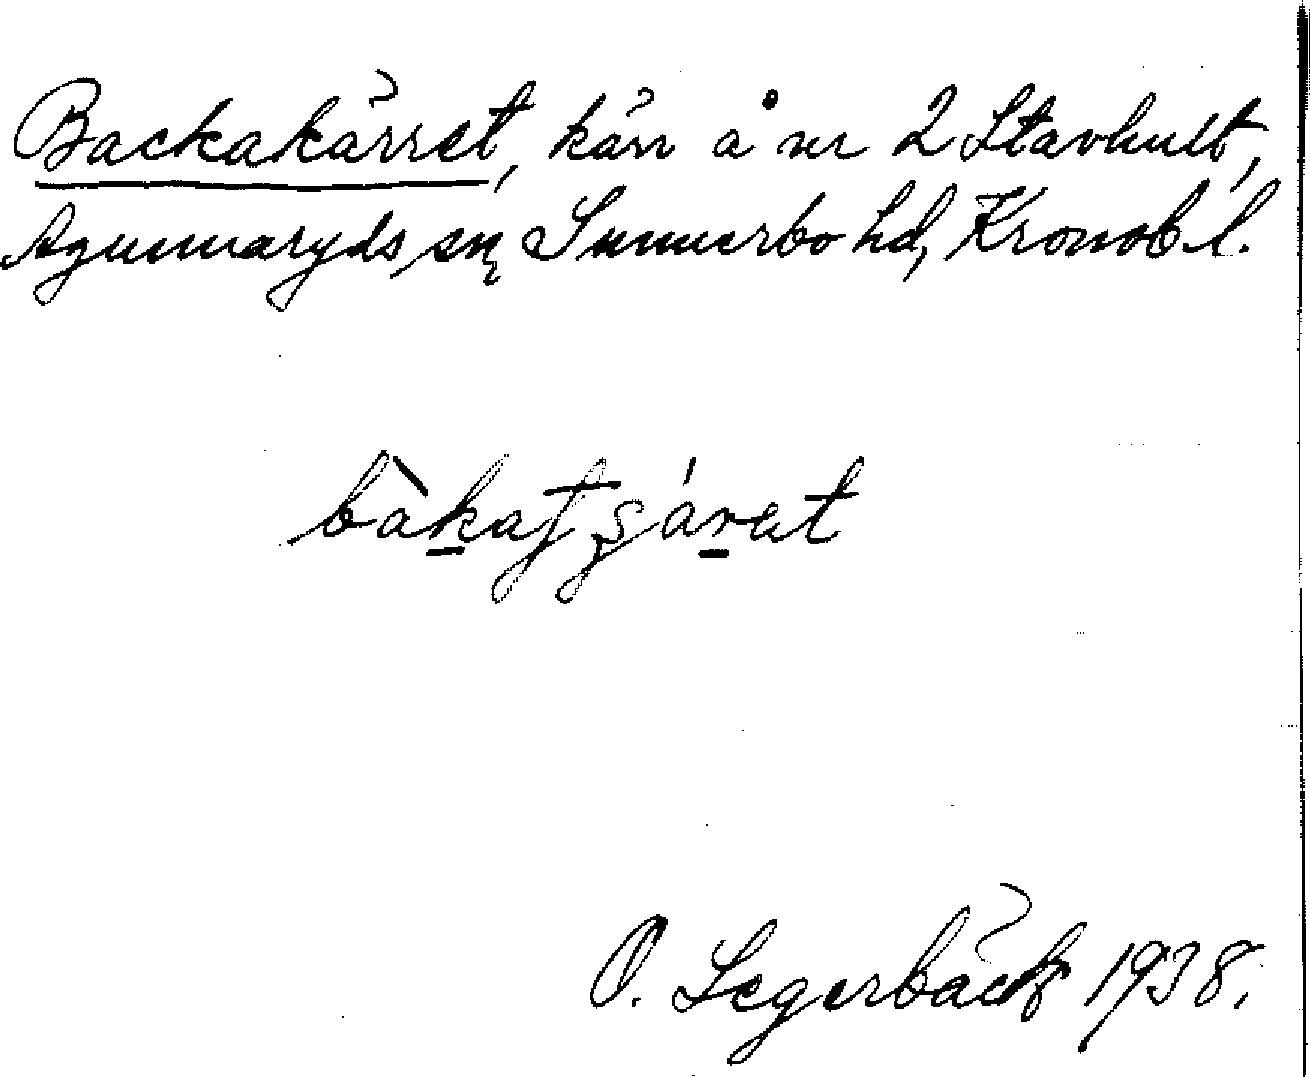 Backakärret, kärr å nr 2 Stavhult,
Agunnaryds sn, Sunnerbo hd, Kronob. l.
bàkatʂáret
O. Segerbäck 1938.